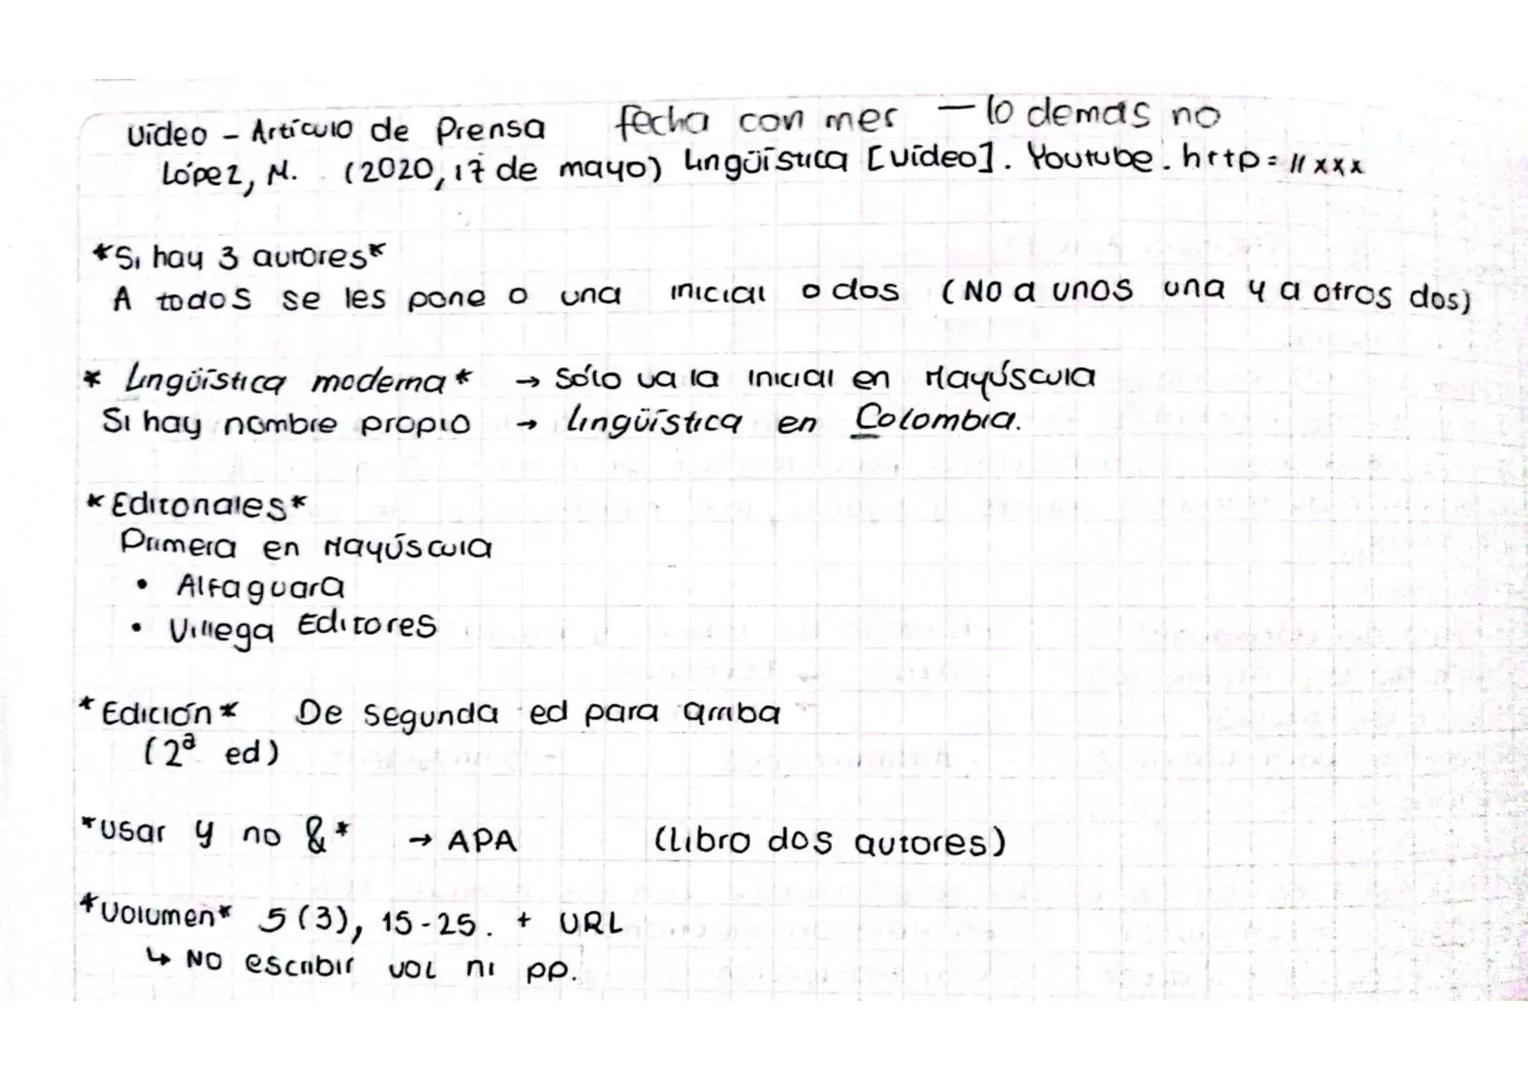 Video - Artículo de Prensa fecha con mes — lo demás no
López, M. (2020, 17 de mayo) Lingüística [Video]. Youtube. http=//xxx
*Si hay 3 autores*
A todos se les pone o una inicial o dos (No a unos una y a otros dos)
* Lingüística moderna* → Sólo va la inicial en Mayúscula
Si hay nombre propio → Lingüística en Colombia.
*Editoriales*
Primera en Mayúscula
• Alfaguara
• Villega Editores
*Edición* De segunda ed para arriba
(2ª ed)
*Usar y no &* → APA (Libro dos autores)
*Volumen* 5(3), 15-25. + URL
↳ No escribir vol ni pp.